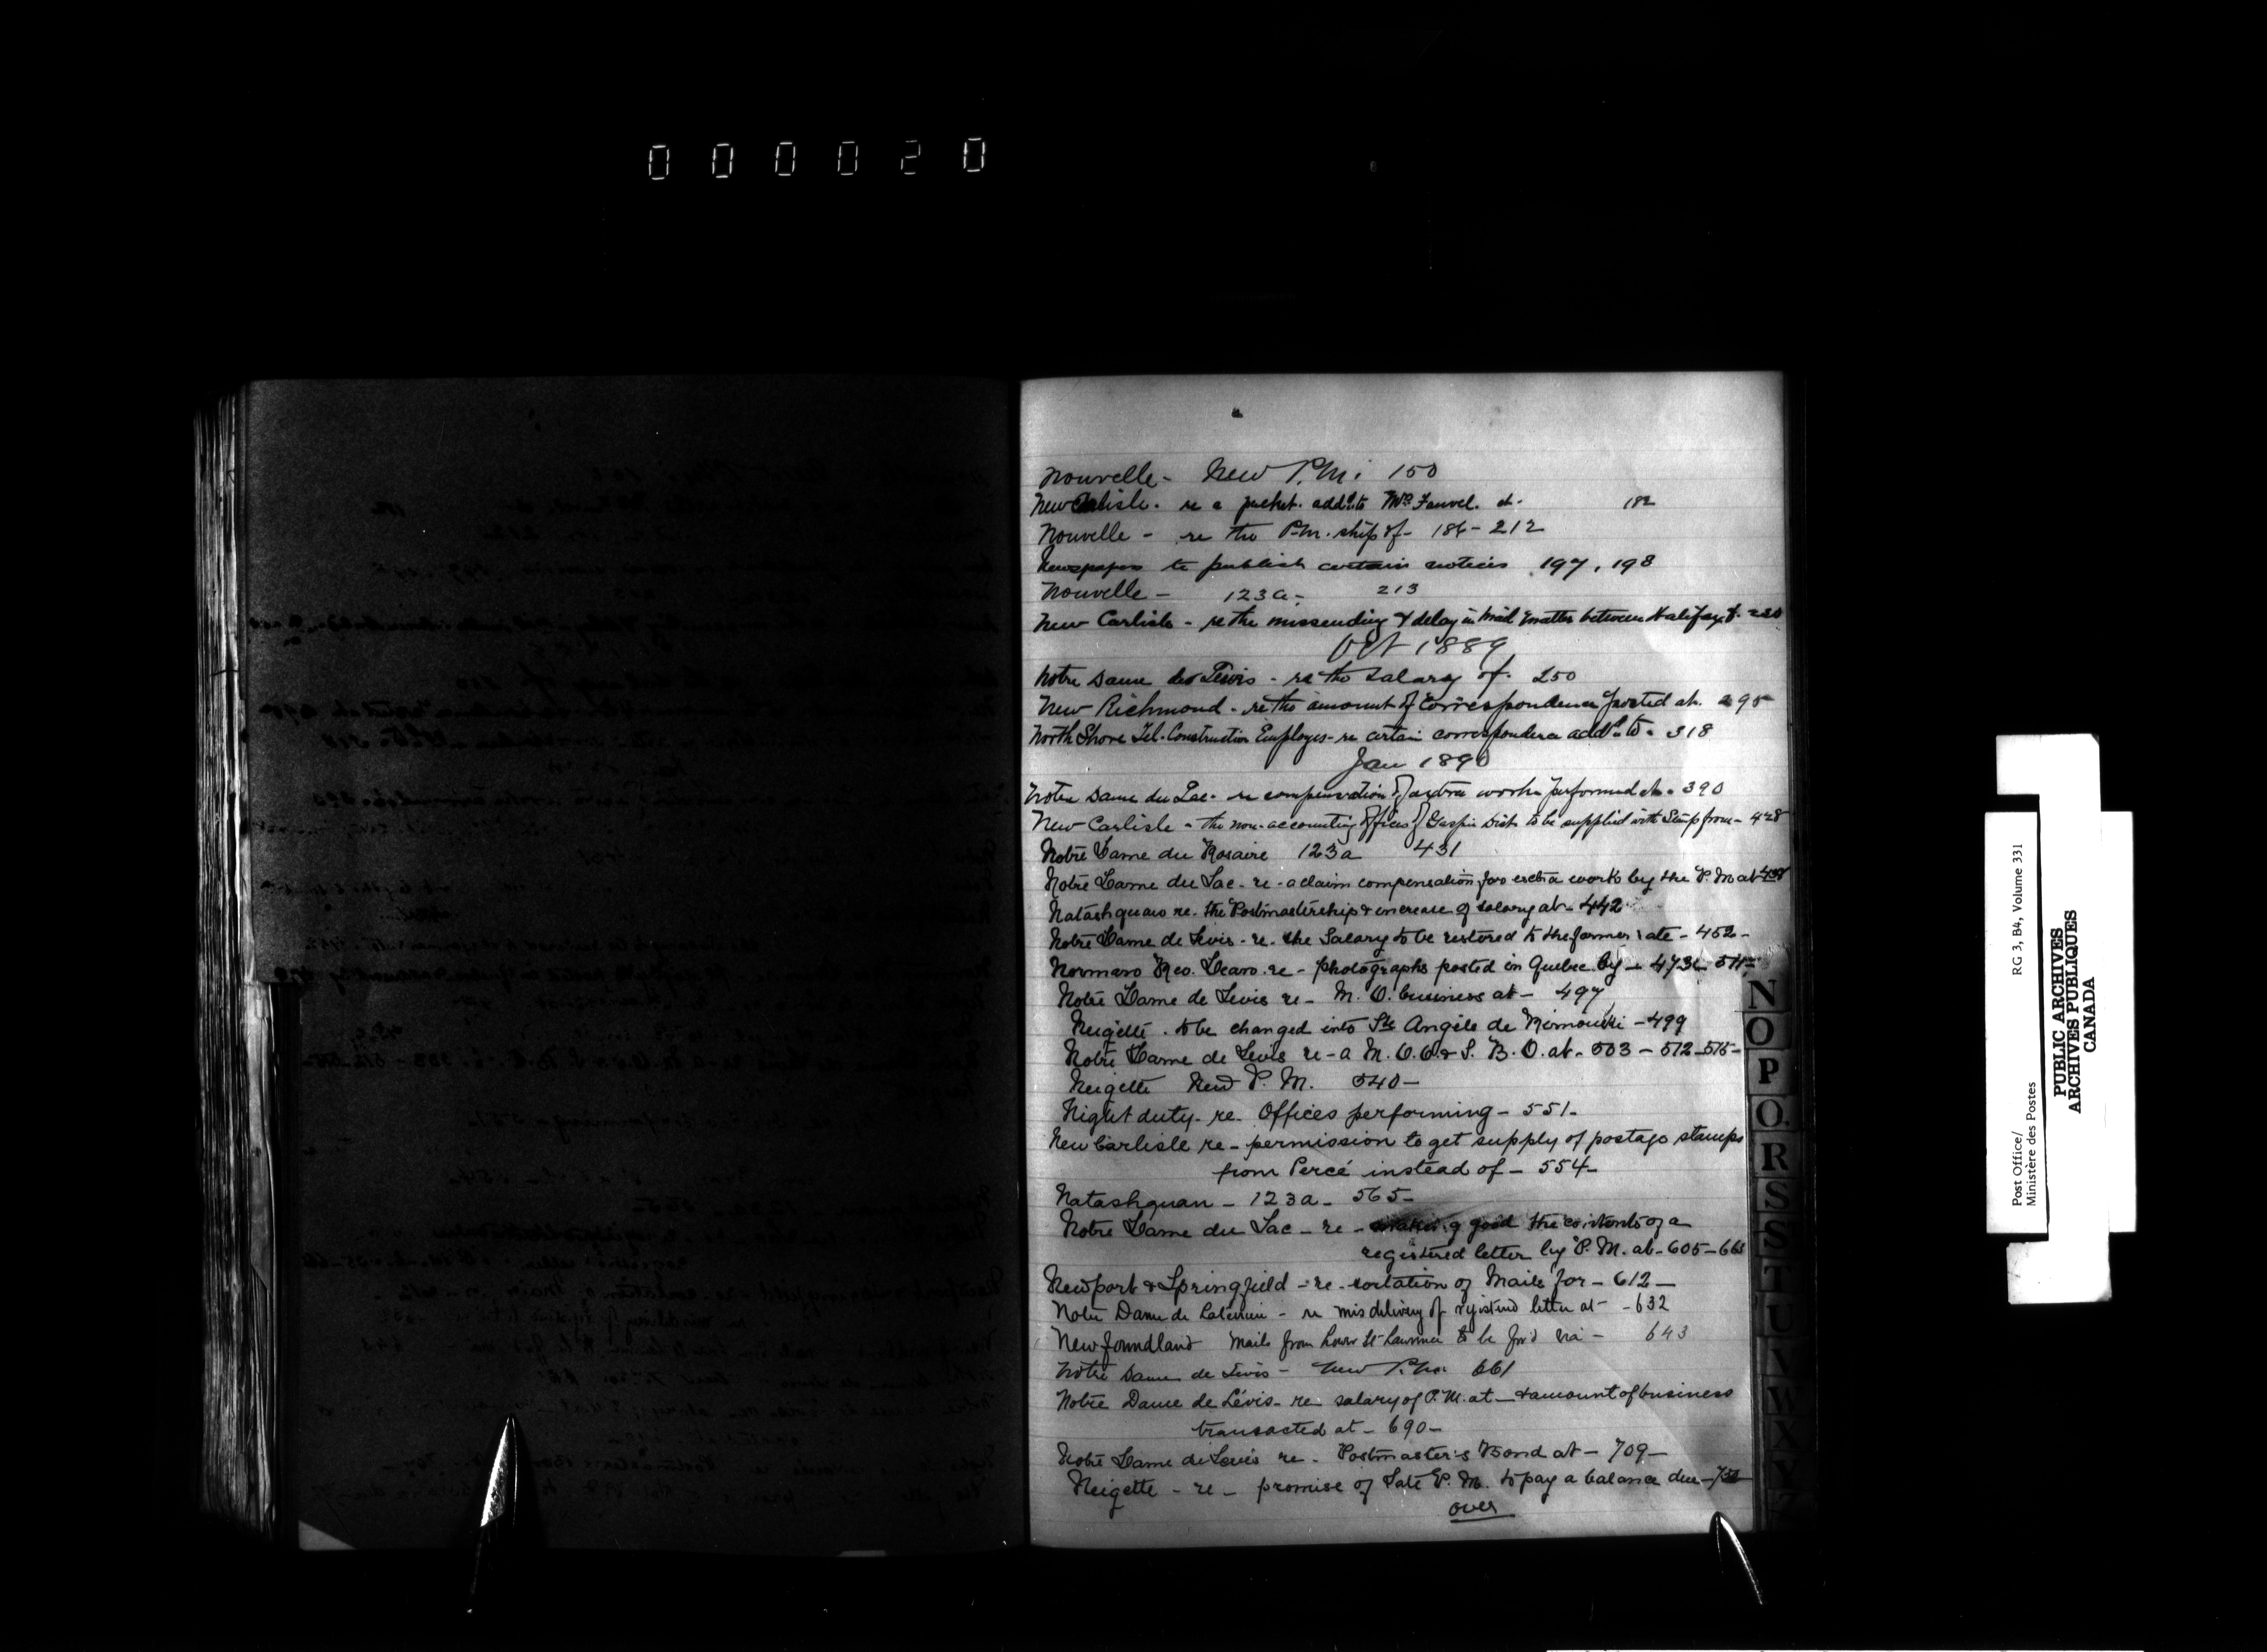 000020
Nouvelle - New P.M. 150
New Carlisle. re a packet. add.d to Mrs Fauvel. at. 182
Nouvelle - re the P.M. ship of - 186 - 212
Newspapers to publish certain notices 197, 198
Nouvelle - 123a - 213
New Carlisle - re the missending & delay in mail matter between Halifax &. 230
Oct 1889
Notre Dame de Levis - re the salary of. 250
New Richmond - re the amount of correspondence posted at. 295
North Shore Tel. Construction Employes - re certain correspondence add.d to - 318
Jan 1890
Notre Dame du Lac - re compensation of extra work performed at - 390
New Carlisle - the non-accounting offices of Gaspé Dist. to be supplied with Stamps from - 428
Notre Dame du Rosaire 123a 431
Notre Dame du Lac - re - a claim compensation for extra work by the P. M at
Natashquan re. the Postmastership & increase of salary at - 442
Notre Dame de Levis - re - the Salary to be restored to the former rate - 452 -
Rev. re - photographs posted in Quebec by - 511 -
Notre Dame de Levis re - M. O. business at - 497
Neigette . to be changed into Ste Angèle de Rimouski - 499
Notre Dame de Levis re - a M. O. O. & S. B. O. at - 503 - 512 - 515 -
Neigette New P. M. 540 -
Night duty - re - Offices performing - 551 -
New Carlisle re - permission to get supply of postage stamps
from Percé instead of - 554 -
Natashquan - 123a - 565 -
Notre Dame du Lac - re - making good the contents of a
registered letter by P. M. at - 605 - 665
Newport & Springfield - re - sortation of Mails for - 612 -
Notre Dame de - re misdelivery of registered letter at - - 632
Newfoundland Mails from Lower St Lawrence to be for'd via - 643
Notre Dame de Levis - New P.M. 661
Notre Dame de Lévis - re salary of P. M. at - & amount of business
transacted at - 690 -
Notre Dame de Levis re - Postmaster's Bond at - 709 -
Neigette - re - promise of late P. M. to pay a balance due -
over
N
O
P
Q
R
S
S
T
U
V
W
X
Y
Z
Post Office/ RG 3, B4, Volume 331
Ministère des Postes
PUBLIC ARCHIVES
ARCHIVES PUBLIQUES
CANADA